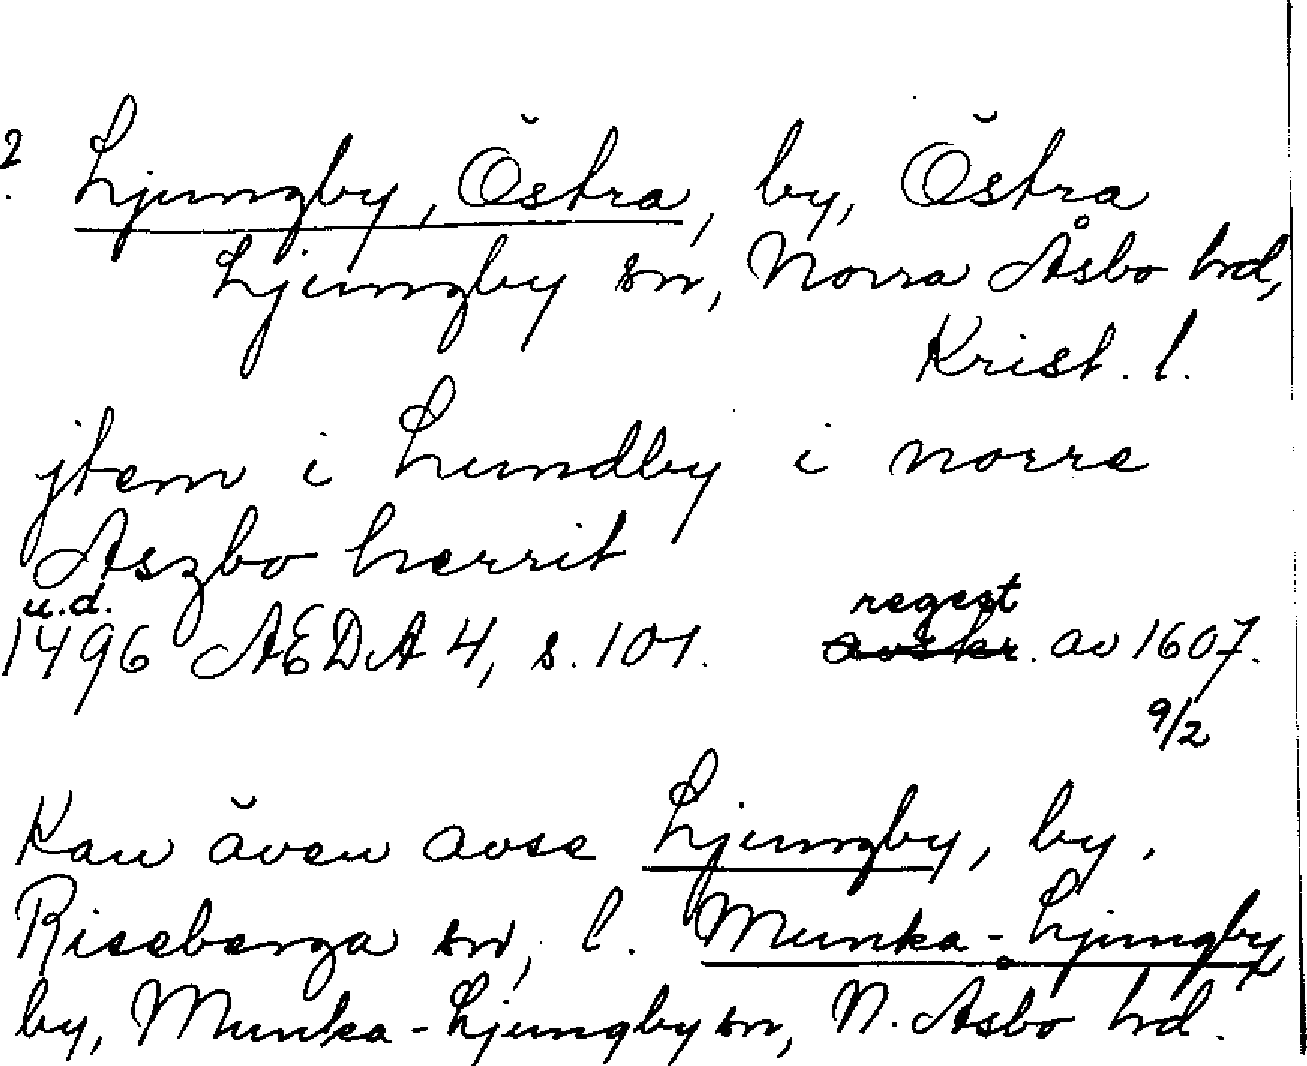 ? Ljungby, Östra, by, Östra
Ljungby sn, Norra Åsbo hd,
Krist. l.
jtem i Lundby i norre
Aszbo herrit
u.d. regest
1496 AEDA 4, s. 101. avskr. av 1607.
9/2
Kan även avse Ljungby, by,
Riseberga sn, l. Munka-Ljungby
by, Munka-Ljungby sn, N. Åsbo hd.